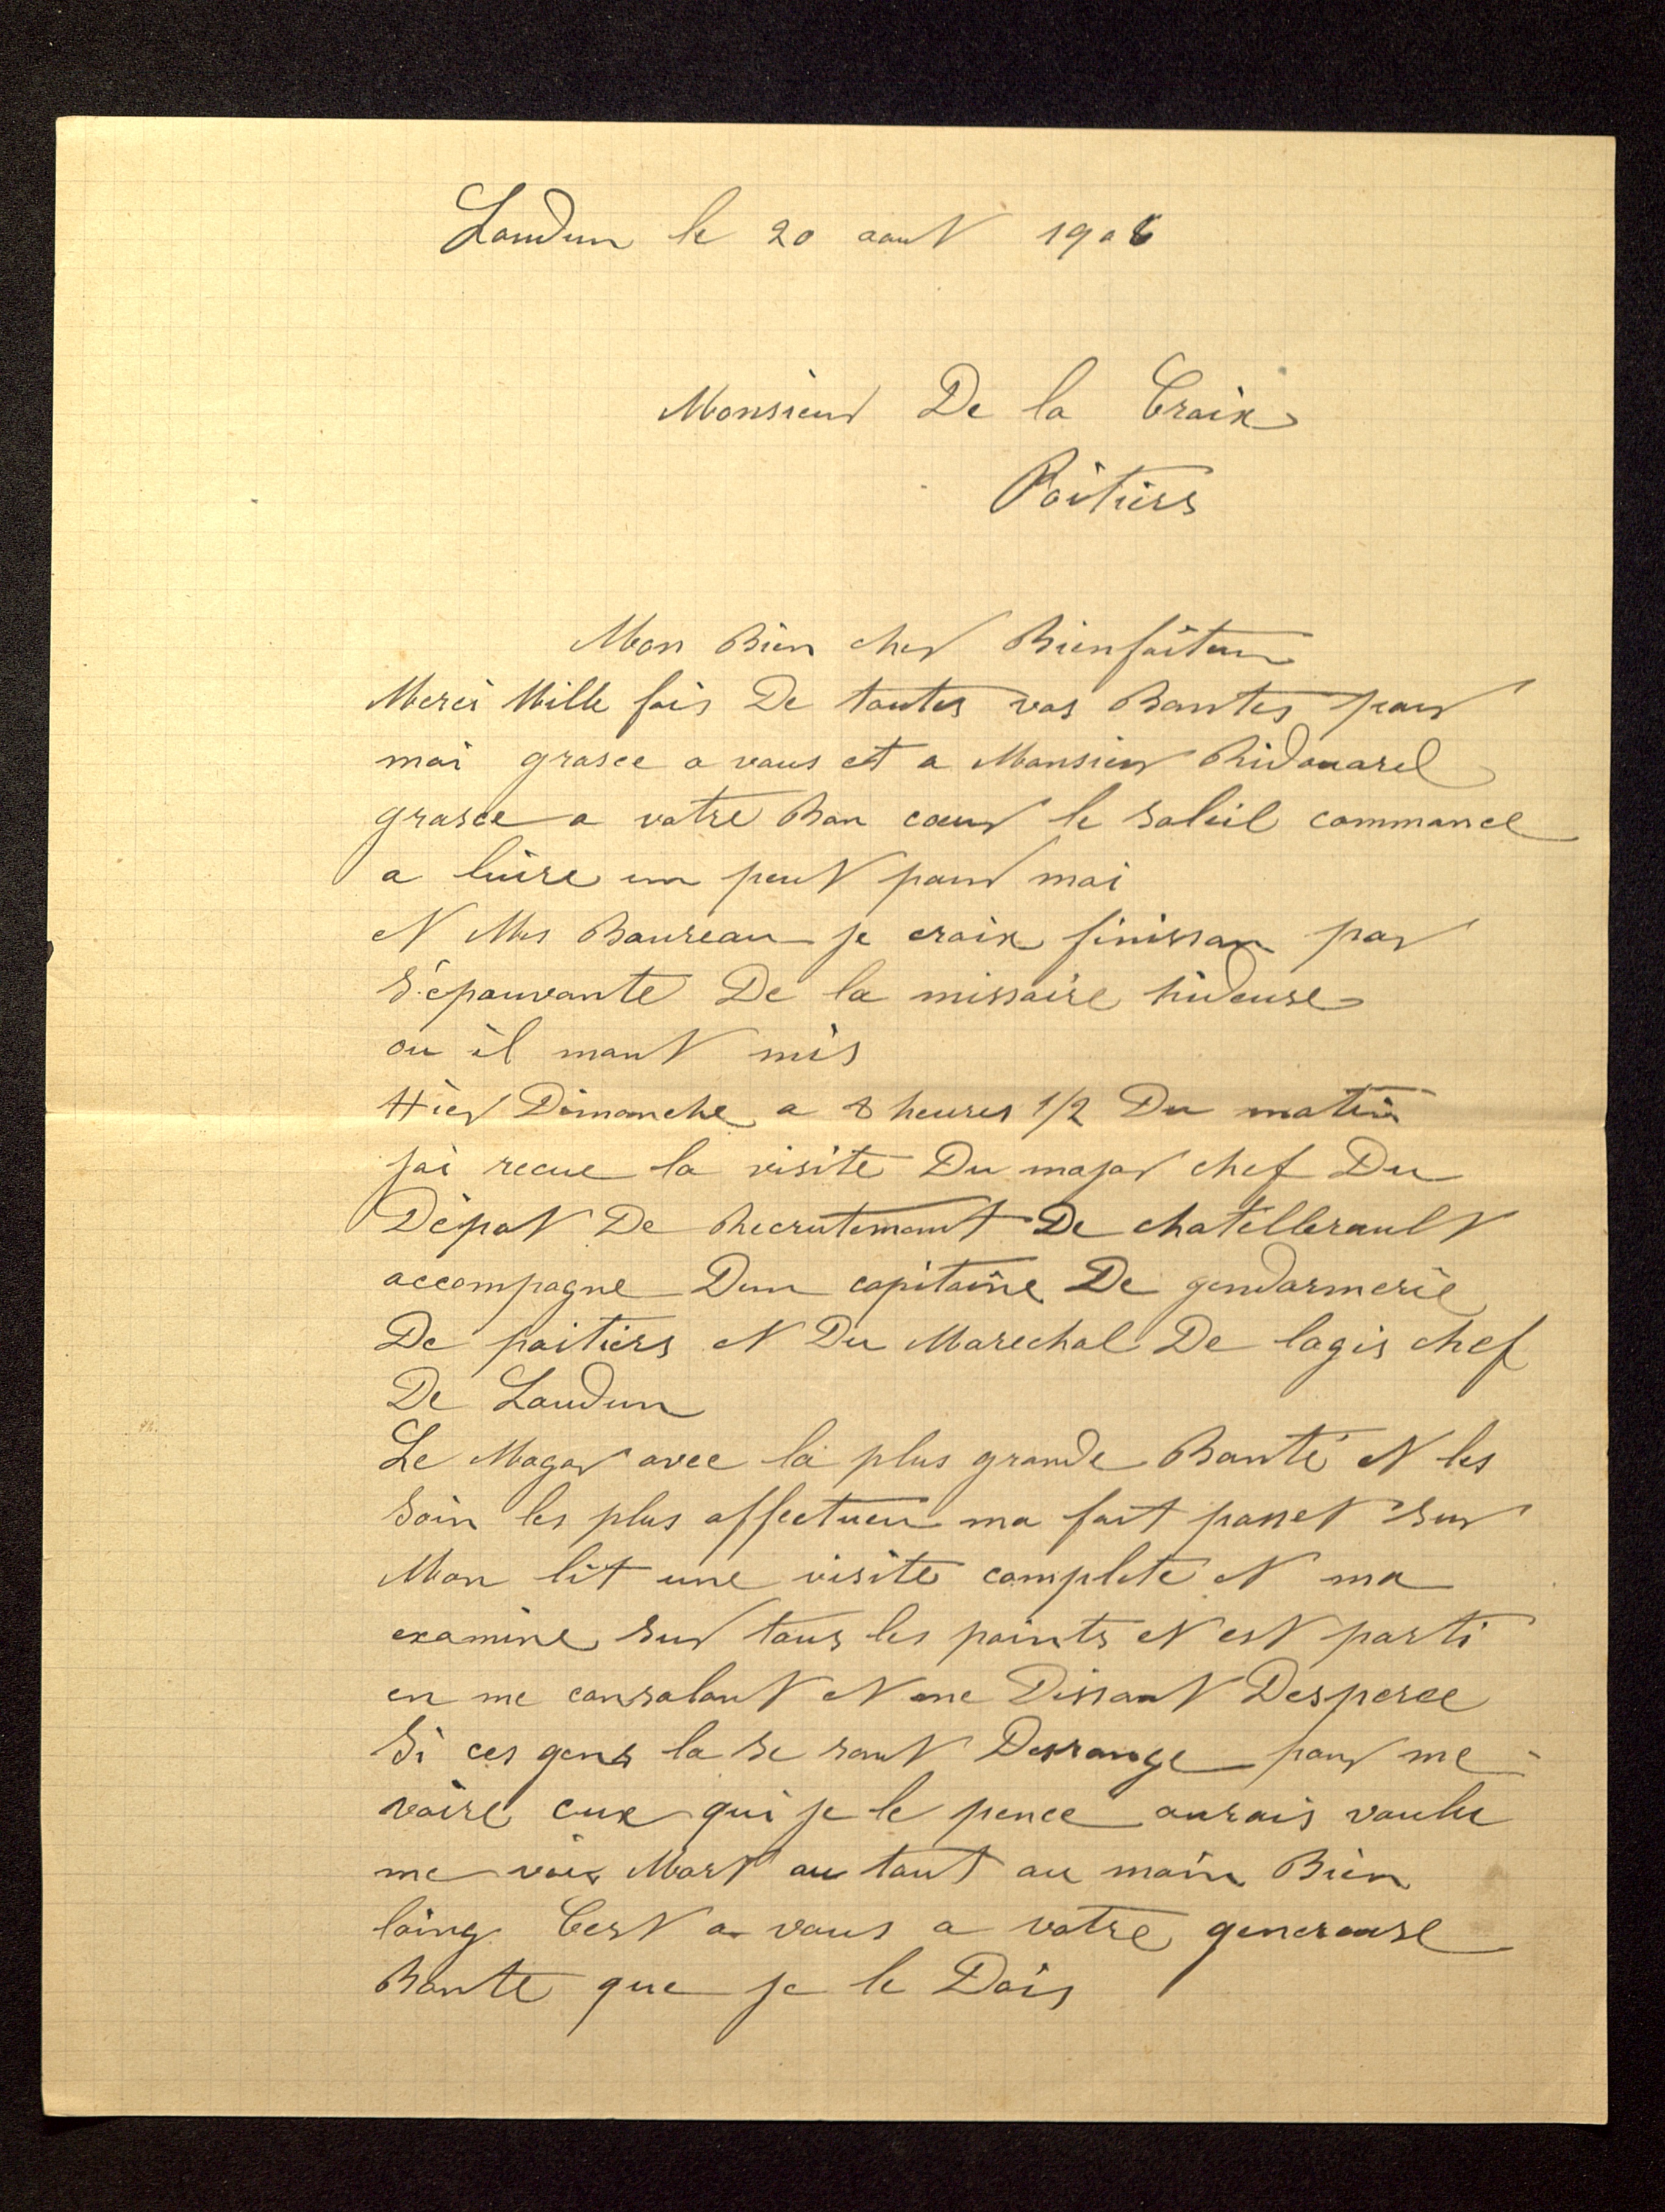 Loudun le 20 aout 1906
Monsieur De la Croix
Poitiers
Mon Bien cher Bienfaiteur
Merci Mille fois De toutes vos Bontes pour
moi grasce a vous et a Monsieur Ridouarel
grasce a votre Bon coeur le soleil commance
a luire un peut pour moi
et Mes Boureau je croix finissan par
s'epouvante De la missaire hideuse
ou il mont mis
Hier Dimanche a 8 heures 1/2 Du matin
jai recue la visite Du major chef Du
Dépot De Recrutemant De chatellerault
accompagne Dun capitaine De gendarmerie
De poitiers et Du Marechal De logis chef
De Loudun
Le Magor avec la plus grande Bonté et les
soin les plus affectueu ma fait passer sur
Mon lit une visite complete et ma
examine sur tous les points et est parti
en me consolant et me Dissant Desperee
Si ces gens la se sont Derrange pour me
voire ceux qui je le pence aurais voulu
me voir Mort ou tout au moin Bien
loing Cest a vous a votre genereuse
Bonte que je le Dois